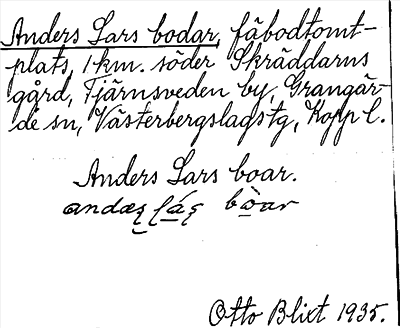 Anders Lars bodar, fäbodtomt-
plats, 1 km. söder Skräddarns
gård, Tjärnsveden by, Grangär-
de sn, Västerbergslags tg, Kopp l.
Anders Lars boar.
Otto Blixt 1935.